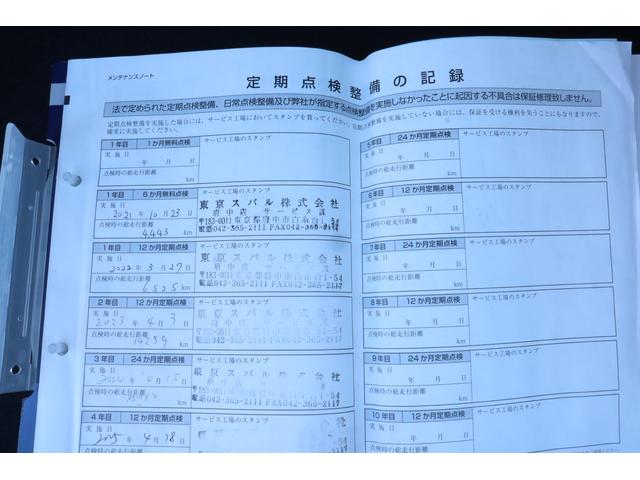 メンテナンスノート
定期点検整備の記録
法で定められた定期点検整備、日常点検整備及び弊社が指定する点検整備を実施しなかったことに起因する不具合は保証修理致しません。
定期点検整備を実施した場合には、サービス工場においてスタンプを貰ってください。定期点検整備を実施していない場合には、保証を受ける権利を失うことにもなりますので、
確実に実施してください。
1年目 1か月無料点検 サービス工場のスタンプ
実施日
年 月 日
点検時の総走行距離
km
1年目 6か月無料点検 サービス工場のスタンプ
実施日
2021年10月23日
点検時の総走行距離
4,443 km
東京スバル株式会社
府中店 サービス課
〒183-0011東京都府中市白糸台1-54
電話042-365-2111 FAX042-365-2117
1年目 12か月定期点検 サービス工場のスタンプ
実施日
2022年3月27日
点検時の総走行距離
6525 km
東京スバル株式会社
府中店 サービス課
〒183-0011東京都府中市白糸台1-54
電話042-365-2111 FAX042-365-2117
2年目 12か月定期点検 サービス工場のスタンプ
実施日
2023年4月3日
点検時の総走行距離
14259 km
東京スバル株式会社
〒183-0011
電話042-365-2111 FAX042-365-2117
3年目 24か月定期点検 サービス工場のスタンプ
実施日
2024年4月15日
点検時の総走行距離
km
東京スバル株式会社
〒183-0011東京都府中市白糸台1-54
電話042-365-2111 FAX042-365-2117
4年目 12か月定期点検 サービス工場のスタンプ
実施日
2025年4月18日
5年目 24か月定期点検 サービス工場のスタンプ
実施日
年 月 日
点検時の総走行距離
km
6年目 12か月定期点検 サービス工場のスタンプ
実施日
年 月 日
点検時の総走行距離
km
7年目 24か月定期点検 サービス工場のスタンプ
実施日
年 月 日
点検時の総走行距離
km
8年目 12か月定期点検 サービス工場のスタンプ
実施日
年 月 日
点検時の総走行距離
km
9年目 24か月定期点検 サービス工場のスタンプ
実施日
年 月 日
点検時の総走行距離
km
10年目 12か月定期点検 サービス工場のスタンプ
実施日
年 月 日